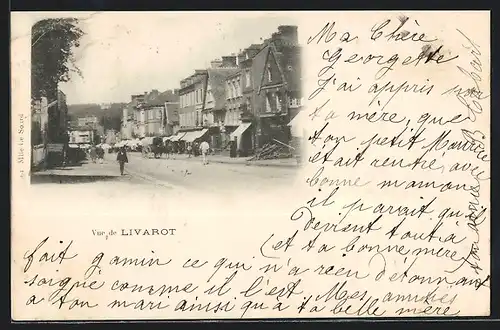 Ma Chère
Georgette
J'ai appris par
ta mère, que
ton petit Maurice
était rentré, avec
bonne maman
il parait qu'il
Devient tout à
(et ta bonne mère)
fait gamin ce qui n'a rien d'étonnant
soigné comme il l'est. Mes amitiés
à ton mari ainsi qu'à ta belle mère
Vue de LIVAROT
Mlle Le Sauné